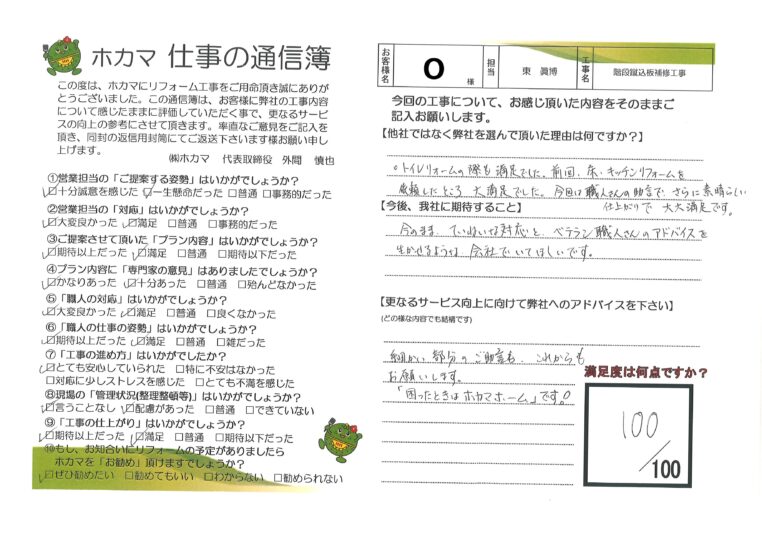 ホカマ 仕事の通信簿
この度は、ホカマにリフォーム工事をご用命頂き誠にありが
とうございました。この通信簿は、お客様に弊社の工事内容
について感じたままに評価していただく事で、更なるサービ
スの向上の参考にさせて頂きます。率直なご意見をご記入を
頂き、同封の返信用封筒にてご返送下さいます様お願い申し
上げます。
㈱ホカマ 代表取締役 外間 慎也
①営業担当の「ご提案する姿勢」はいかがでしょうか?
☑十分誠意を感じた ☑一生懸命だった □普通 □事務的だった
②営業担当の「対応」はいかがでしょうか?
☑大変良かった ☑満足 □普通 □事務的だった
③ご提案させて頂いた「プラン内容」はいかがでしょうか?
☑期待以上だった ☑満足 □普通 □期待以下だった
④プラン内容に「専門家の意見」はありましたでしょうか?
☑かなりあった ☑十分あった □普通 □殆んどなかった
⑤「職人の対応」はいかがでしょうか?
☑大変良かった ☑満足 □普通 □良くなかった
⑥「職人の仕事の姿勢」はいかがでしょうか?
☑期待以上だった ☑満足 □普通 □雑だった
⑦「工事の進め方」はいかがでしたか?
☑とても安心していられた □特に不安はなかった
□対応に少しストレスを感じた □とても不満を感じた
⑧現場の「管理状況(整理整頓等)」はいかがでしょうか?
☑言うことなし ☑配慮があった □普通 □できていない
⑨「工事の仕上がり」はいかがでしょうか?
☑期待以上だった ☑満足 □普通 □期待以下だった
⑩もし、お知合いにリフォームの予定がありましたら
ホカマを「お勧め」頂けますでしょうか?
☑ぜひ勧めたい □勧めてもいい □わからない □勧められない
お客様名 O 様 担当 東 眞博 工事名 階段蹴込板補修工事
今回の工事について、お感じ頂いた内容をそのままご
記入お願いします。
【他社ではなく弊社を選んで頂いた理由は何ですか?】
○トイレリフォームの際も満足でした。前回、床・キッチンリフォームを
依頼したところ 大満足でした。今回は職人さんの助言で、さらに素晴らしい
仕上がりで 大大満足です。
【今後、我社に期待すること】
今のまま、ていねいな対応と ベテラン職人さんのアドバイスを
生かせるような 会社でいてほしいです。
【更なるサービス向上に向けて弊社へのアドバイスを下さい】
(どの様な内容でも結構です)
細かい部分のご助言も、これからも
お願いします。
「困ったときはホカマホーム」です。
満足度は何点ですか?
100
/100